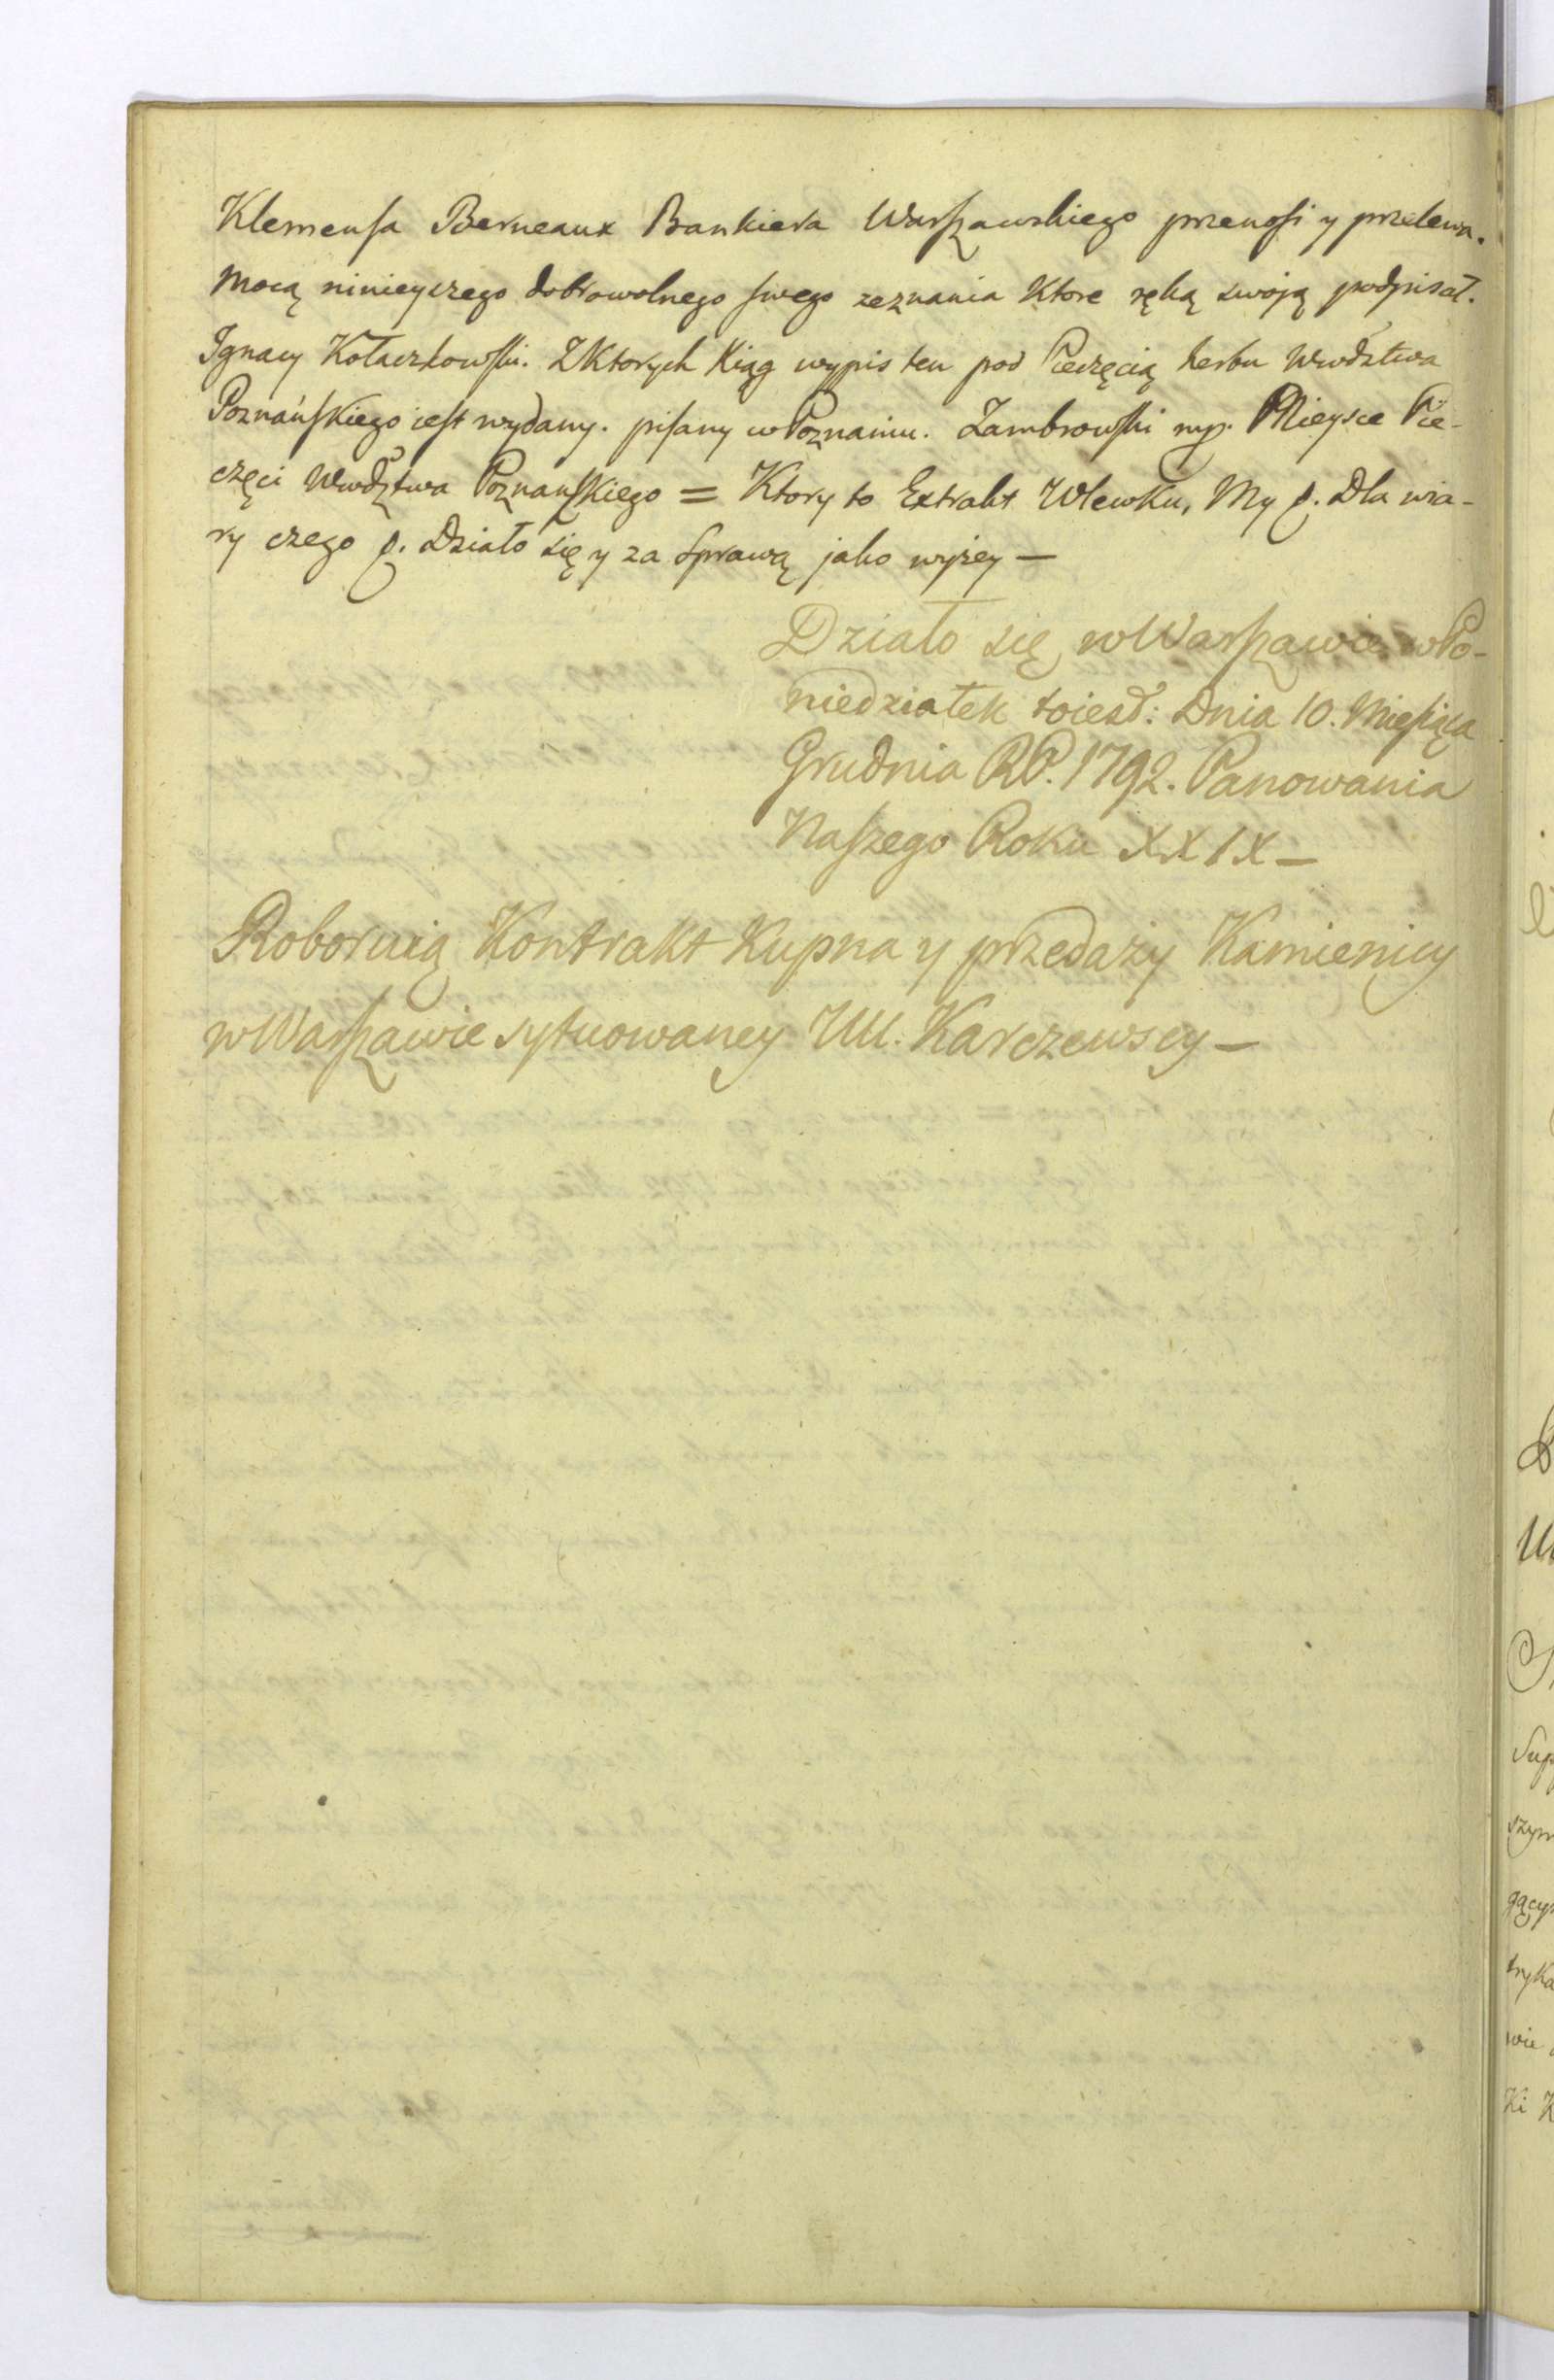 Klemensa Berneaux Bankiera Warszawskiego przenosi y przelewa.
Mocą ninieyszego dobrowolnego swego zeznania Ktore ręką swoją podpisał.
Ignacy Kołaczkowski. Z Ktorych Xiąg wypis ten pod Pieczęcią herbu Wwdztwa
Poznańskiego jest wydany. pisany w Poznaniu. Zambrowski mp. Mieysce Pie-
częci Wwdztwa Poznanskiego = Ktory to Extrakt Wlewku, My p. Dla wia-
ry czego p. Działo się y za Sprawą jako wyżey —
Działo się w Warszawie w Po-
niedziałek to iest: Dnia 10. Miesiąca
Grudnia RP. 1792. Panowania
Naszego Roku XXIX —
Roboruią Kontrakt Kupna y przedaży Kamienicy
w Warszawie sytuowaney UU. Karczewscy —